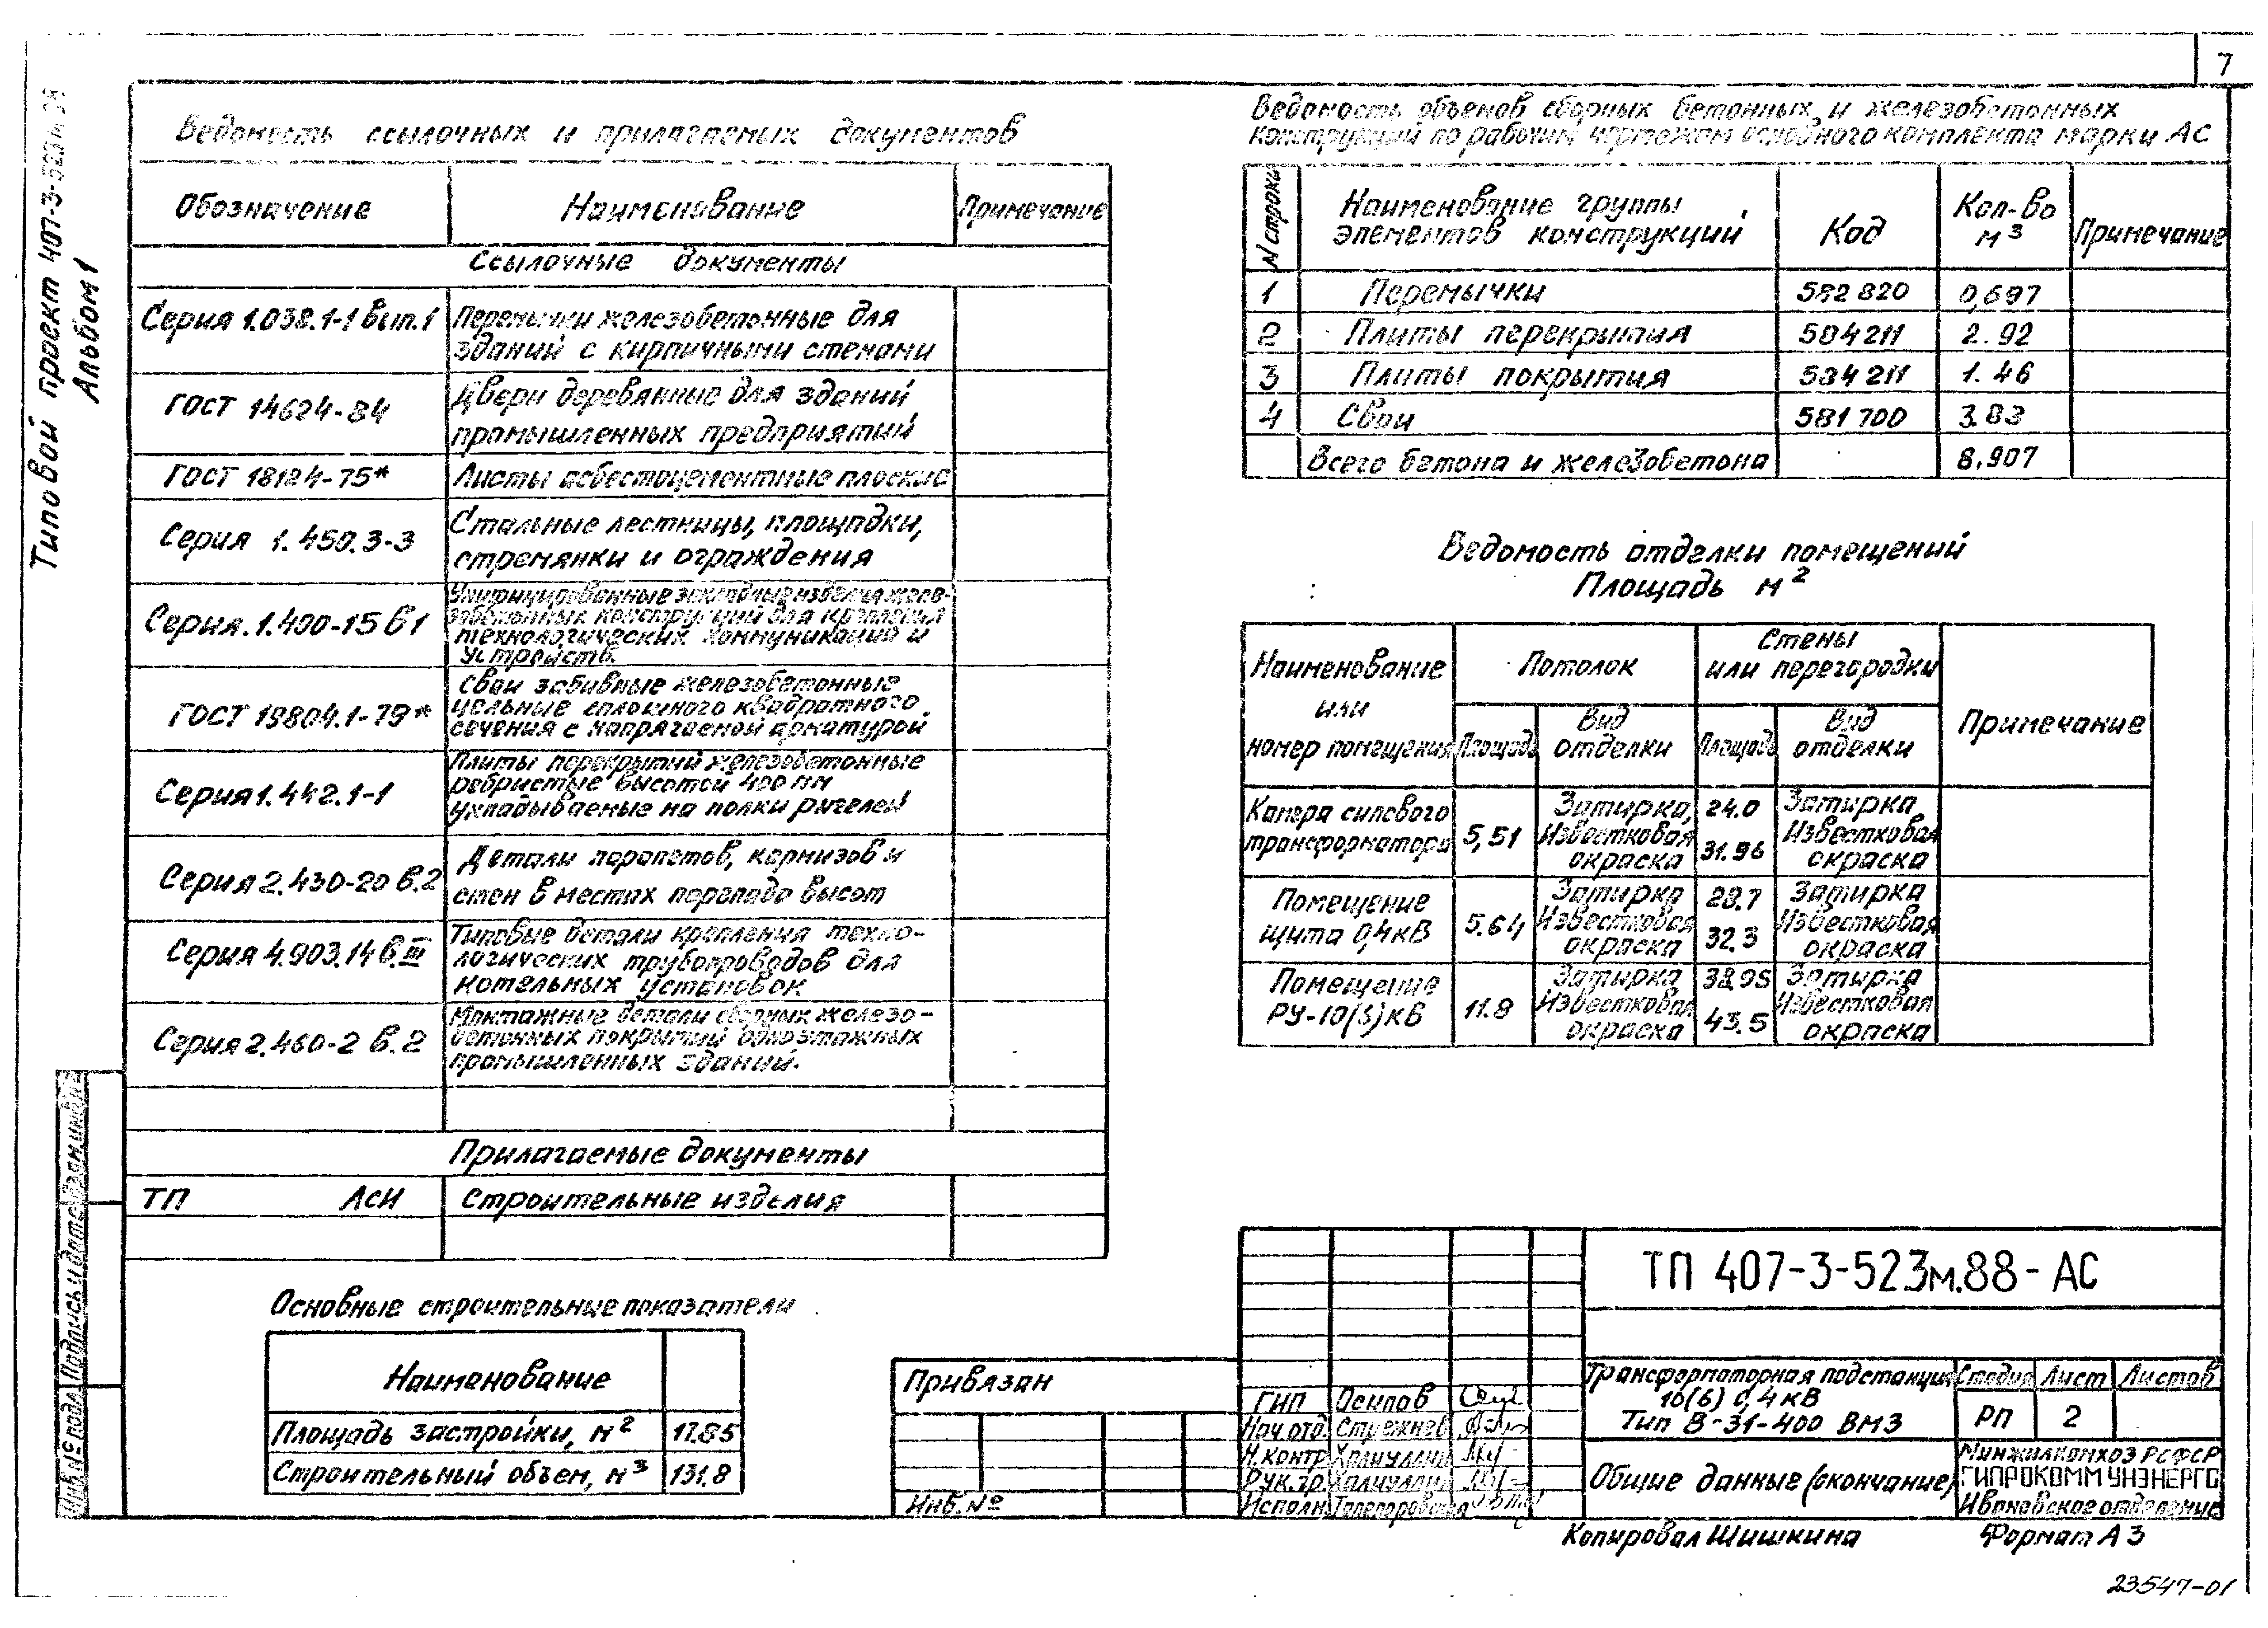 7
Типовой проект 407-3-523м.88
Альбом 1
Ведомость ссылочных и прилагаемых документов
Обозначение Наименование Примечание
Ссылочные документы
Серия 1.038.1-1 вып.1 Перемычки железобетонные для
зданий с кирпичными стенами
ГОСТ 14624-84 Двери деревянные для зданий
промышленных предприятий
ГОСТ 18124-75* Листы асбестоцементные плоские
Серия 1.450.3-3 Стальные лестницы, площадки,
стремянки и ограждения
Серия.1.400-15 в1 Унифицированные закладные изделия желе-
зобетонных конструкций для крепления
технологических коммуникаций и
устройств.
ГОСТ 19804.1-79* Сваи забивные железобетонные
цельные сплошного квадратного
сечения с напрягаемой арматурой
Серия 1.442.1-1 Плиты перекрытий железобетонные
ребристые высотой 400 мм
укладываемые на полки ригелей
Серия 2.430-20 в.2 Детали парапетов, карнизов и
стен в местах перепада высот
Серия 4.903.14 в.III Типовые детали крепления техно-
логических трубопроводов для
котельных установок
Серия 2.460-2 в.2 Монтажные детали сборных железо-
бетонных покрытий одноэтажных
промышленных зданий.
Прилагаемые документы
ТП АСИ Строительные изделия
Основные строительные показатели
Наименование
Площадь застройки, м² 17.85
Строительный объем, м³ 131.8
Ведомость объемов сборных бетонных и железобетонных
конструкций по рабочим чертежам основного комплекта марки АС
N строки Наименование группы элементов конструкций Код Кол-во м³ Примечание
1 Перемычки 582 820 0,697
2 Плиты перекрытия 584211 2.92
3 Плиты покрытия 584211 1.46
4 Сваи 581 700 3.83
Всего бетона и железобетона 8.907
Ведомость отделки помещений
Площадь м²
Наименование или номер помещения Потолок Стены или перегородки Примечание
Площадь Вид отделки Площадь Вид отделки
Камера силового трансформатора 5,51 Затирка, Известковая окраска 24.0 31.96 Затирка, Известковая окраска
Помещение щита 0,4кВ 5.64 Затирка Известковая окраска 28.7 32.3 Затирка Известковая окраска
Помещение РУ-10(6)кВ 11.8 Затирка Известковая окраска 38.95 43.5 Затирка Известковая окраска
Привязан
Инв.№
ТП 407-3-523м.88-АС
ГИП Осипов
Нач.отд. Стрежнев
Н.контр Халиуллин
Рук.гр. Халиуллин
Исполн.
Трансформаторная подстанция
10(6) 0,4кВ
Тип В-31-400 ВМЗ
Стадия Лист Листов
РП 2
Общие данные (окончание)
Минжилкомхоз РСФСР
ГИПРОКОММУНЭНЕРГО
Ивановское отделение
Копировал Шишкина Формат А3
23547-01
Инв.№ подл. Подпись и дата Взам.инв.№